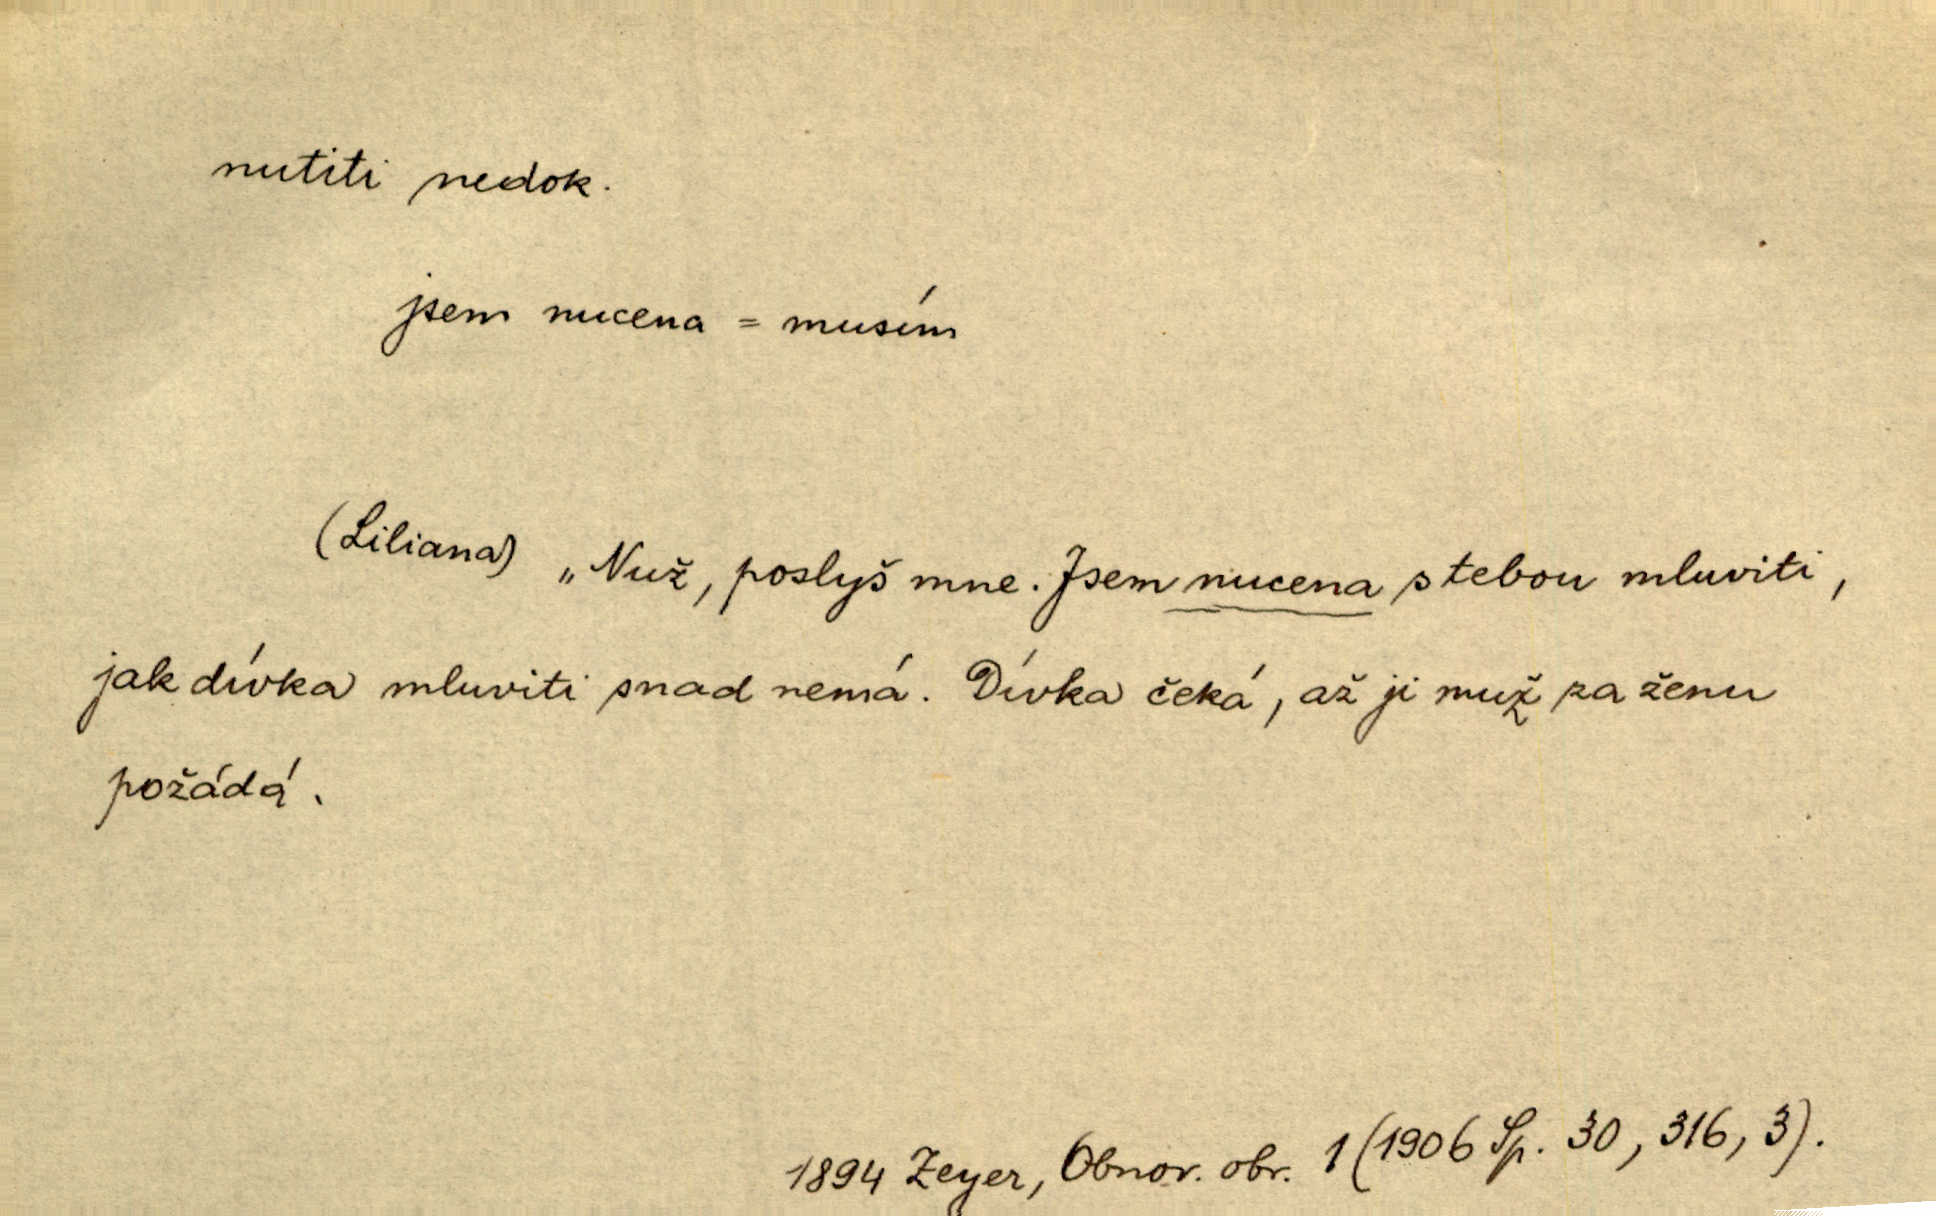 nutiti nedok.
jsem nucena = musím
(Liliana) „Nuž, poslyš mne. Jsem nucena s tebou mluviti,
jak dívka mluviti snad nemá. Dívka čeká, až ji muž za ženu
požádá.
1894 Zeyer, Obnov. obr. 1 (1906 Sp. 30, 316, 3).